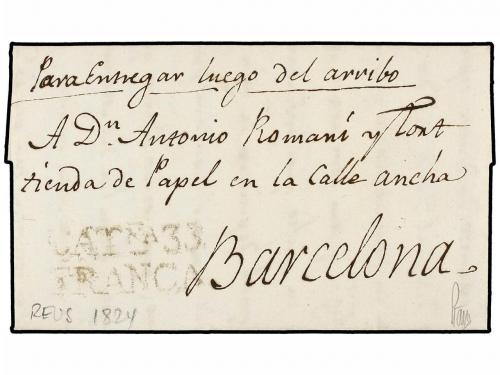 Para Entregar luego del arribo
A Dn. Antonio Romaní y Tort
tienda de Papel en la Calle ancha
Barcelona.
CATña. 33
FRANCA
REUS 1824